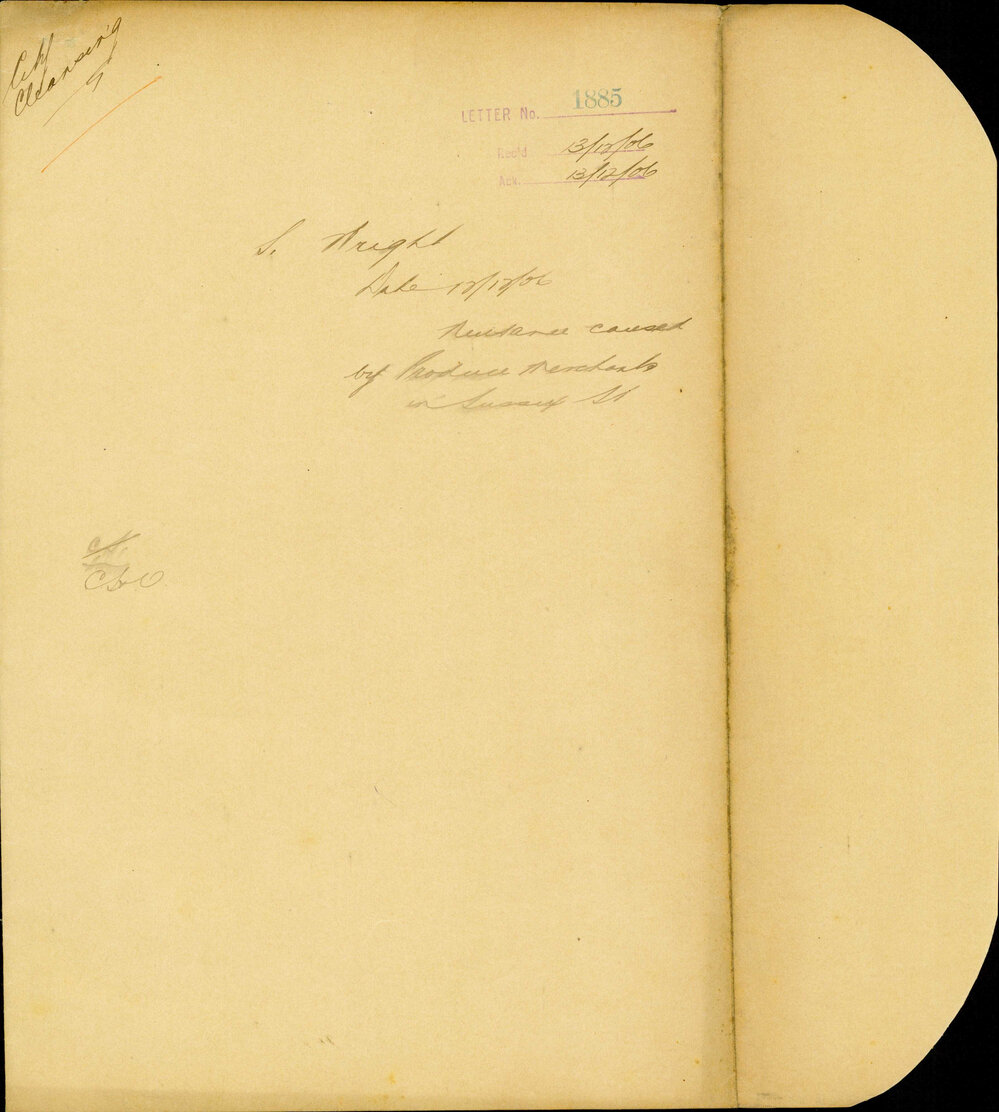 City
Cleansing
LETTER No. 1885
Rec'd 13/12/06
Ack. 13/12/06
S. Wright
Date 12/12/06
Nuisance caused
by Produce Merchants
in Sussex St